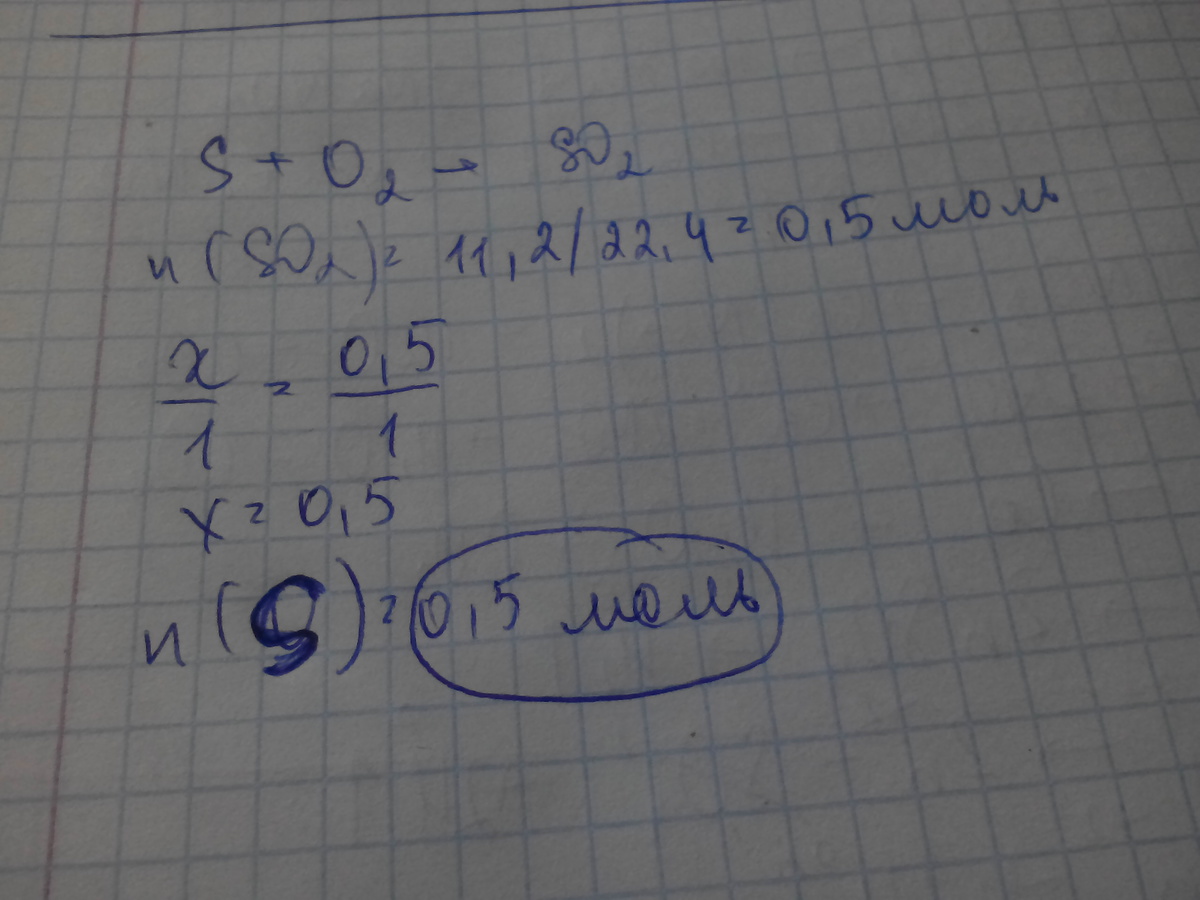 S + O₂ → SO₂
n (SO₂) = 11,2/22,4 = 0,5 моль
x/1 = 0,5/1
x = 0,5
n (S) = 0,5 моль